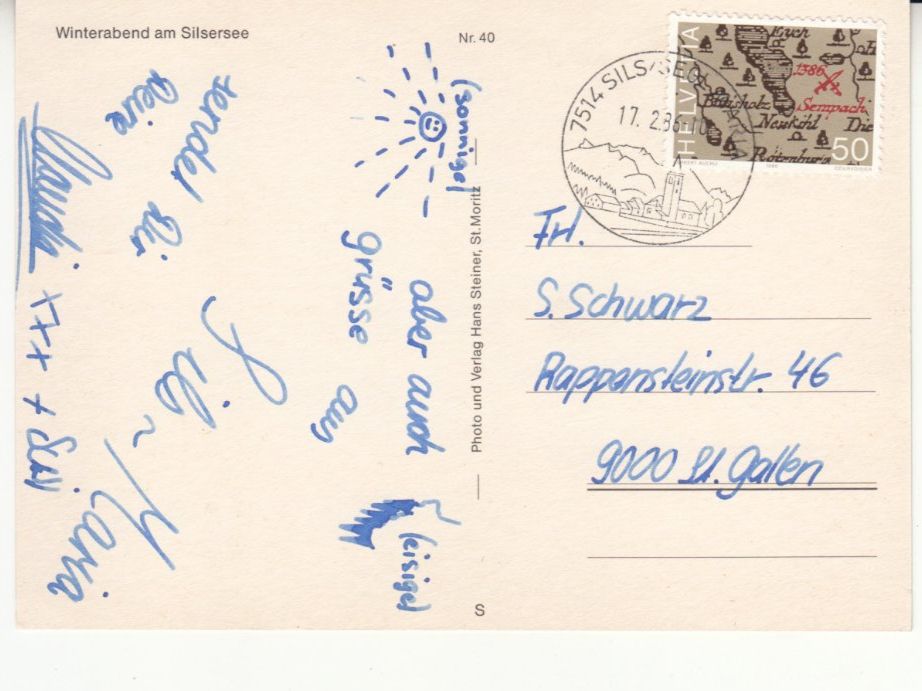 Winterabend am Silsersee
Nr. 40
(sonnige)
aber auch
(eisige)
grüsse aus
Sils-Maria
sendet Dir
Deine
Claudia xxx +
Photo und Verlag Hans Steiner, St. Moritz
S
7514 SILS/SEGL MARIA
17.2.86-10
HELVETIA
Buchsholz
1386
Sempach
Neukihl
Die
Rotenburg
50
Frl.
S. Schwarz
Rappensteinstr. 46
9000 St. Gallen